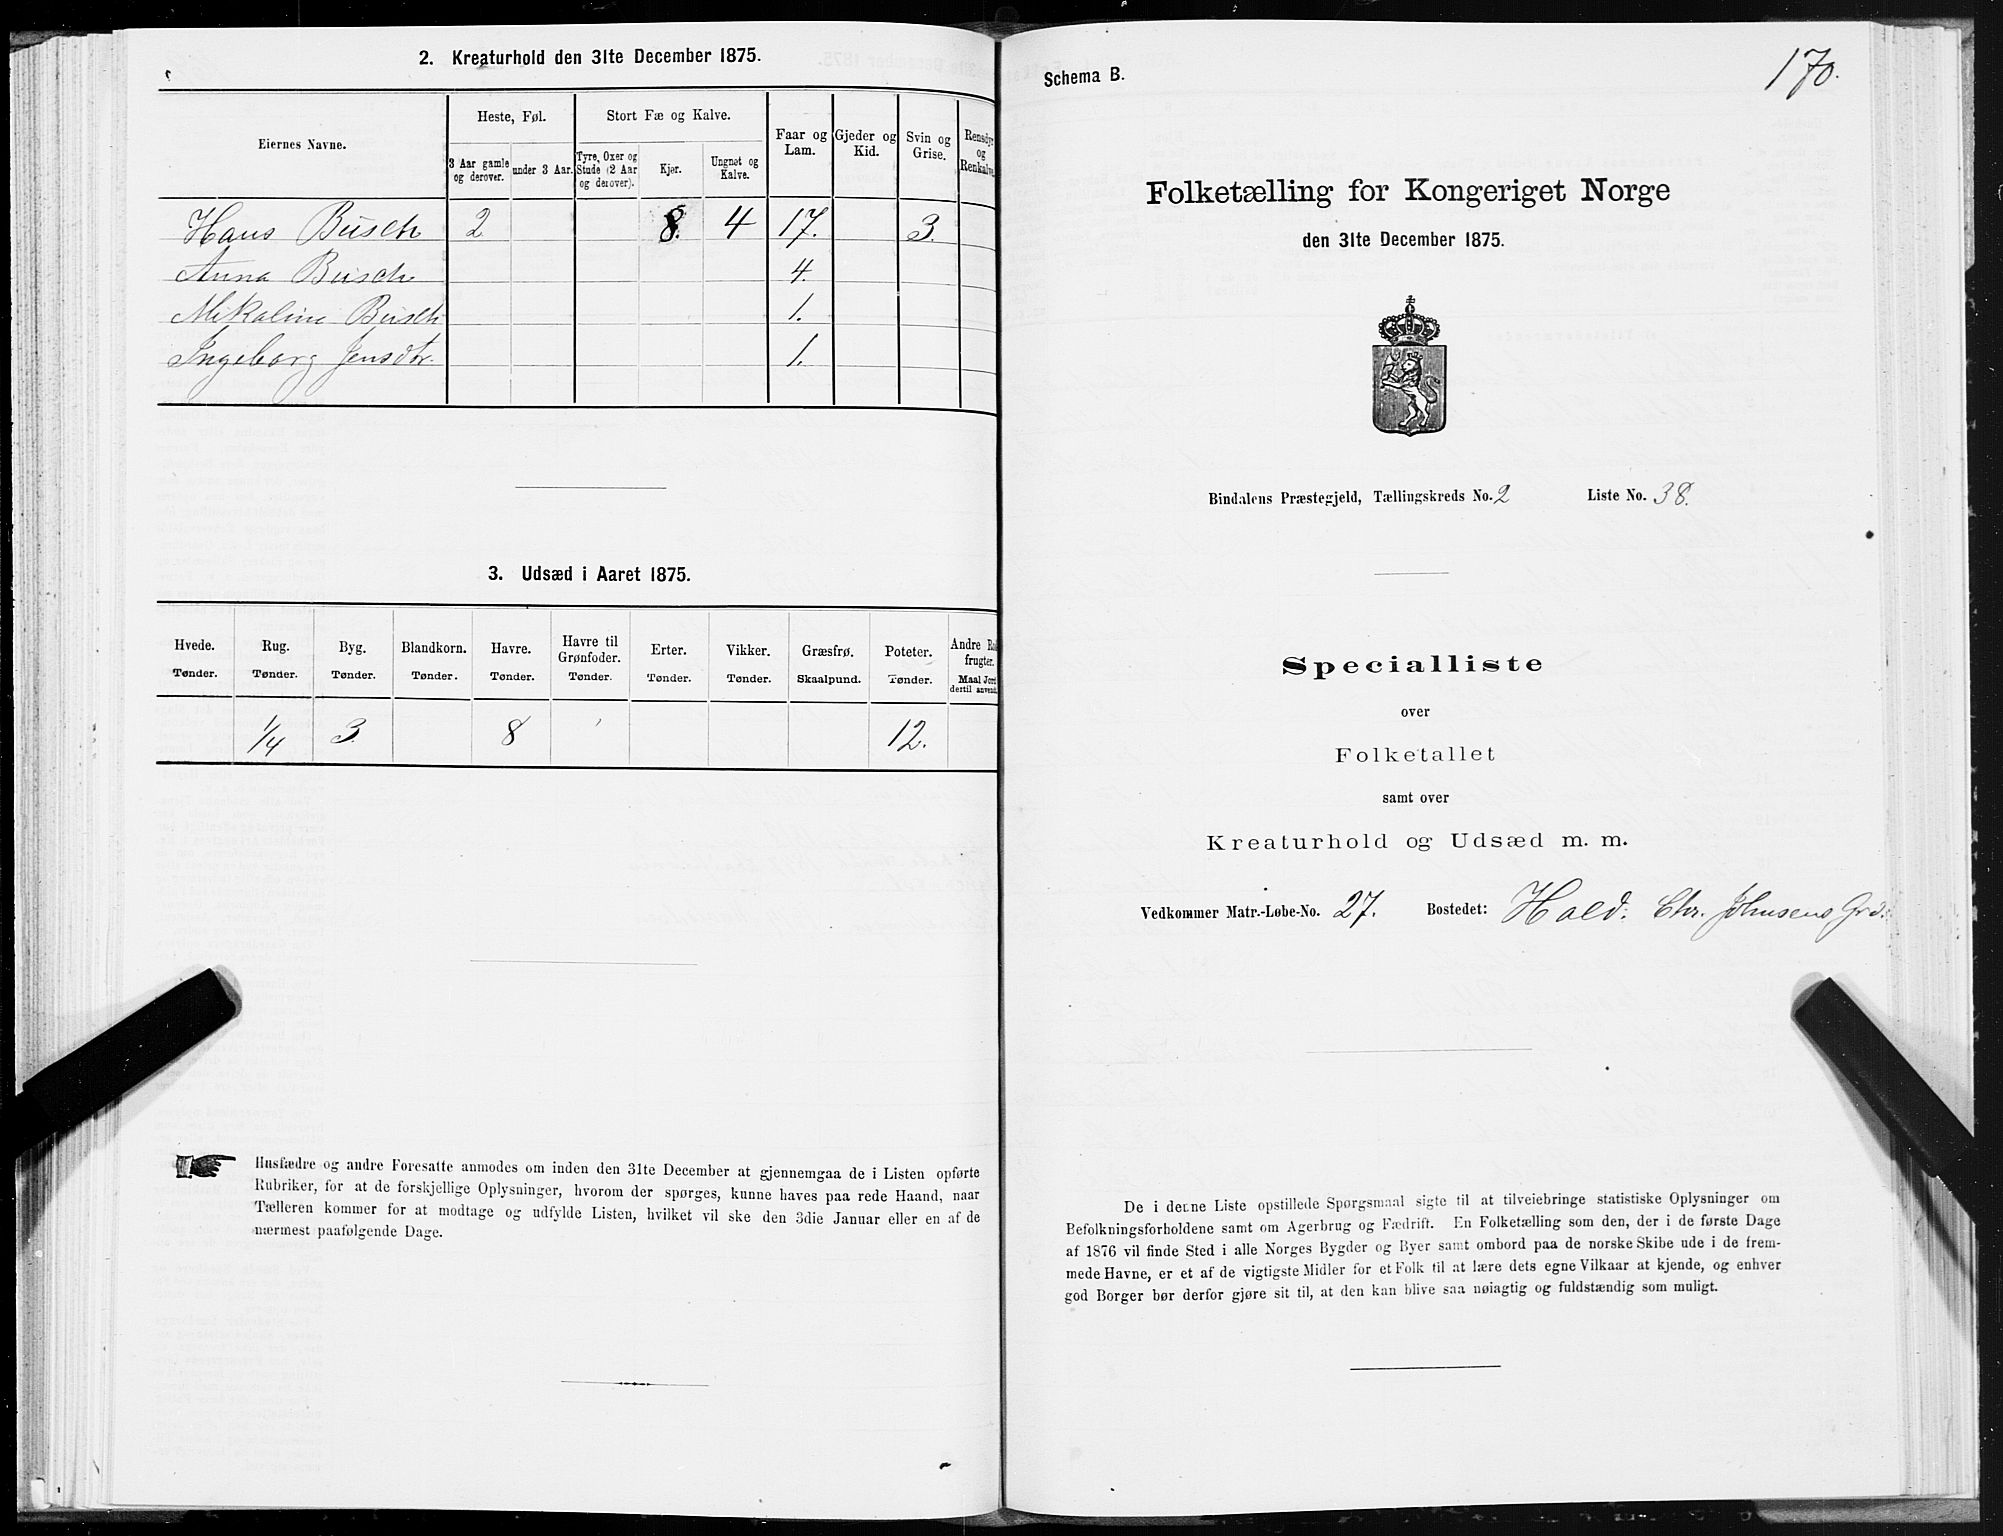 2. Kreaturhold den 31te December 1875.
Eiernes Navne.
Heste, Føl.
Stort Fæ og Kalve.
Faar og Lam.
Gjeder og Kid.
Svin og Grise.
Rensdyr og Renkalve.
3 Aar gamle og derover.
under 3 Aar.
Tyre, Oxer og Stude (2 Aar og derover).
Kjør.
Ungnøt og Kalve.
Hans Busch 2 8. 4 17. 3.
Anna Busch 4.
Mikaline Busch 1.
Ingeborg Jensdtr. 1.
3. Udsæd i Aaret 1875.
Hvede. Rug. Byg. Blandkorn. Havre. Havre til Grønfoder. Erter. Vikker. Græsfrø. Poteter. Andre Rodfrugter.
Tønder. Tønder. Tønder. Tønder. Tønder. Tønder. Tønder. Tønder. Skaalpund. Tønder. Maal Jord dertil anvendt.
1/4 3 8 12.
Husfædre og andre Foresatte anmodes om inden den 31te December at gjennemgaa de i Listen opførte
Rubriker, for at de forskjellige Oplysninger, hvorom der spørges, kunne haves paa rede Haand, naar
Tælleren kommer for at modtage og udfylde Listen, hvilket vil ske den 3die Januar eller en af de
nærmest paafølgende Dage.
170.
Schema B.
Folketælling for Kongeriget Norge
den 31te December 1875.
Bindalens Præstegjeld, Tællingskreds No. 2 Liste No. 38.
Specialliste
over
Folketallet
samt over
Kreaturhold og Udsæd m. m.
Vedkommer Matr.-Løbe-No. 27. Bostedet: Hald: Chr. Johnsens Grd.
De i denne Liste opstillede Spørgsmaal sigte til at tilveiebringe statistiske Oplysninger om
Befolkningsforholdene samt om Agerbrug og Fædrift. En Folketælling som den, der i de første Dage
af 1876 vil finde Sted i alle Norges Bygder og Byer samt ombord paa de norske Skibe ude i de frem-
mede Havne, er et af de vigtigste Midler for et Folk til at lære dets egne Vilkaar at kjende, og enhver
god Borger bør derfor gjøre sit til, at den kan blive saa nøiagtig og fuldstændig som muligt.